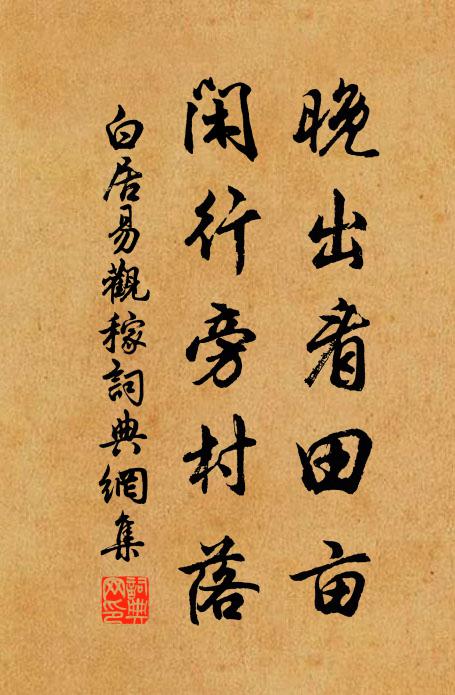 晚出看田亩
闲行旁村落
白居易觀稼詞典網集
詞典网印